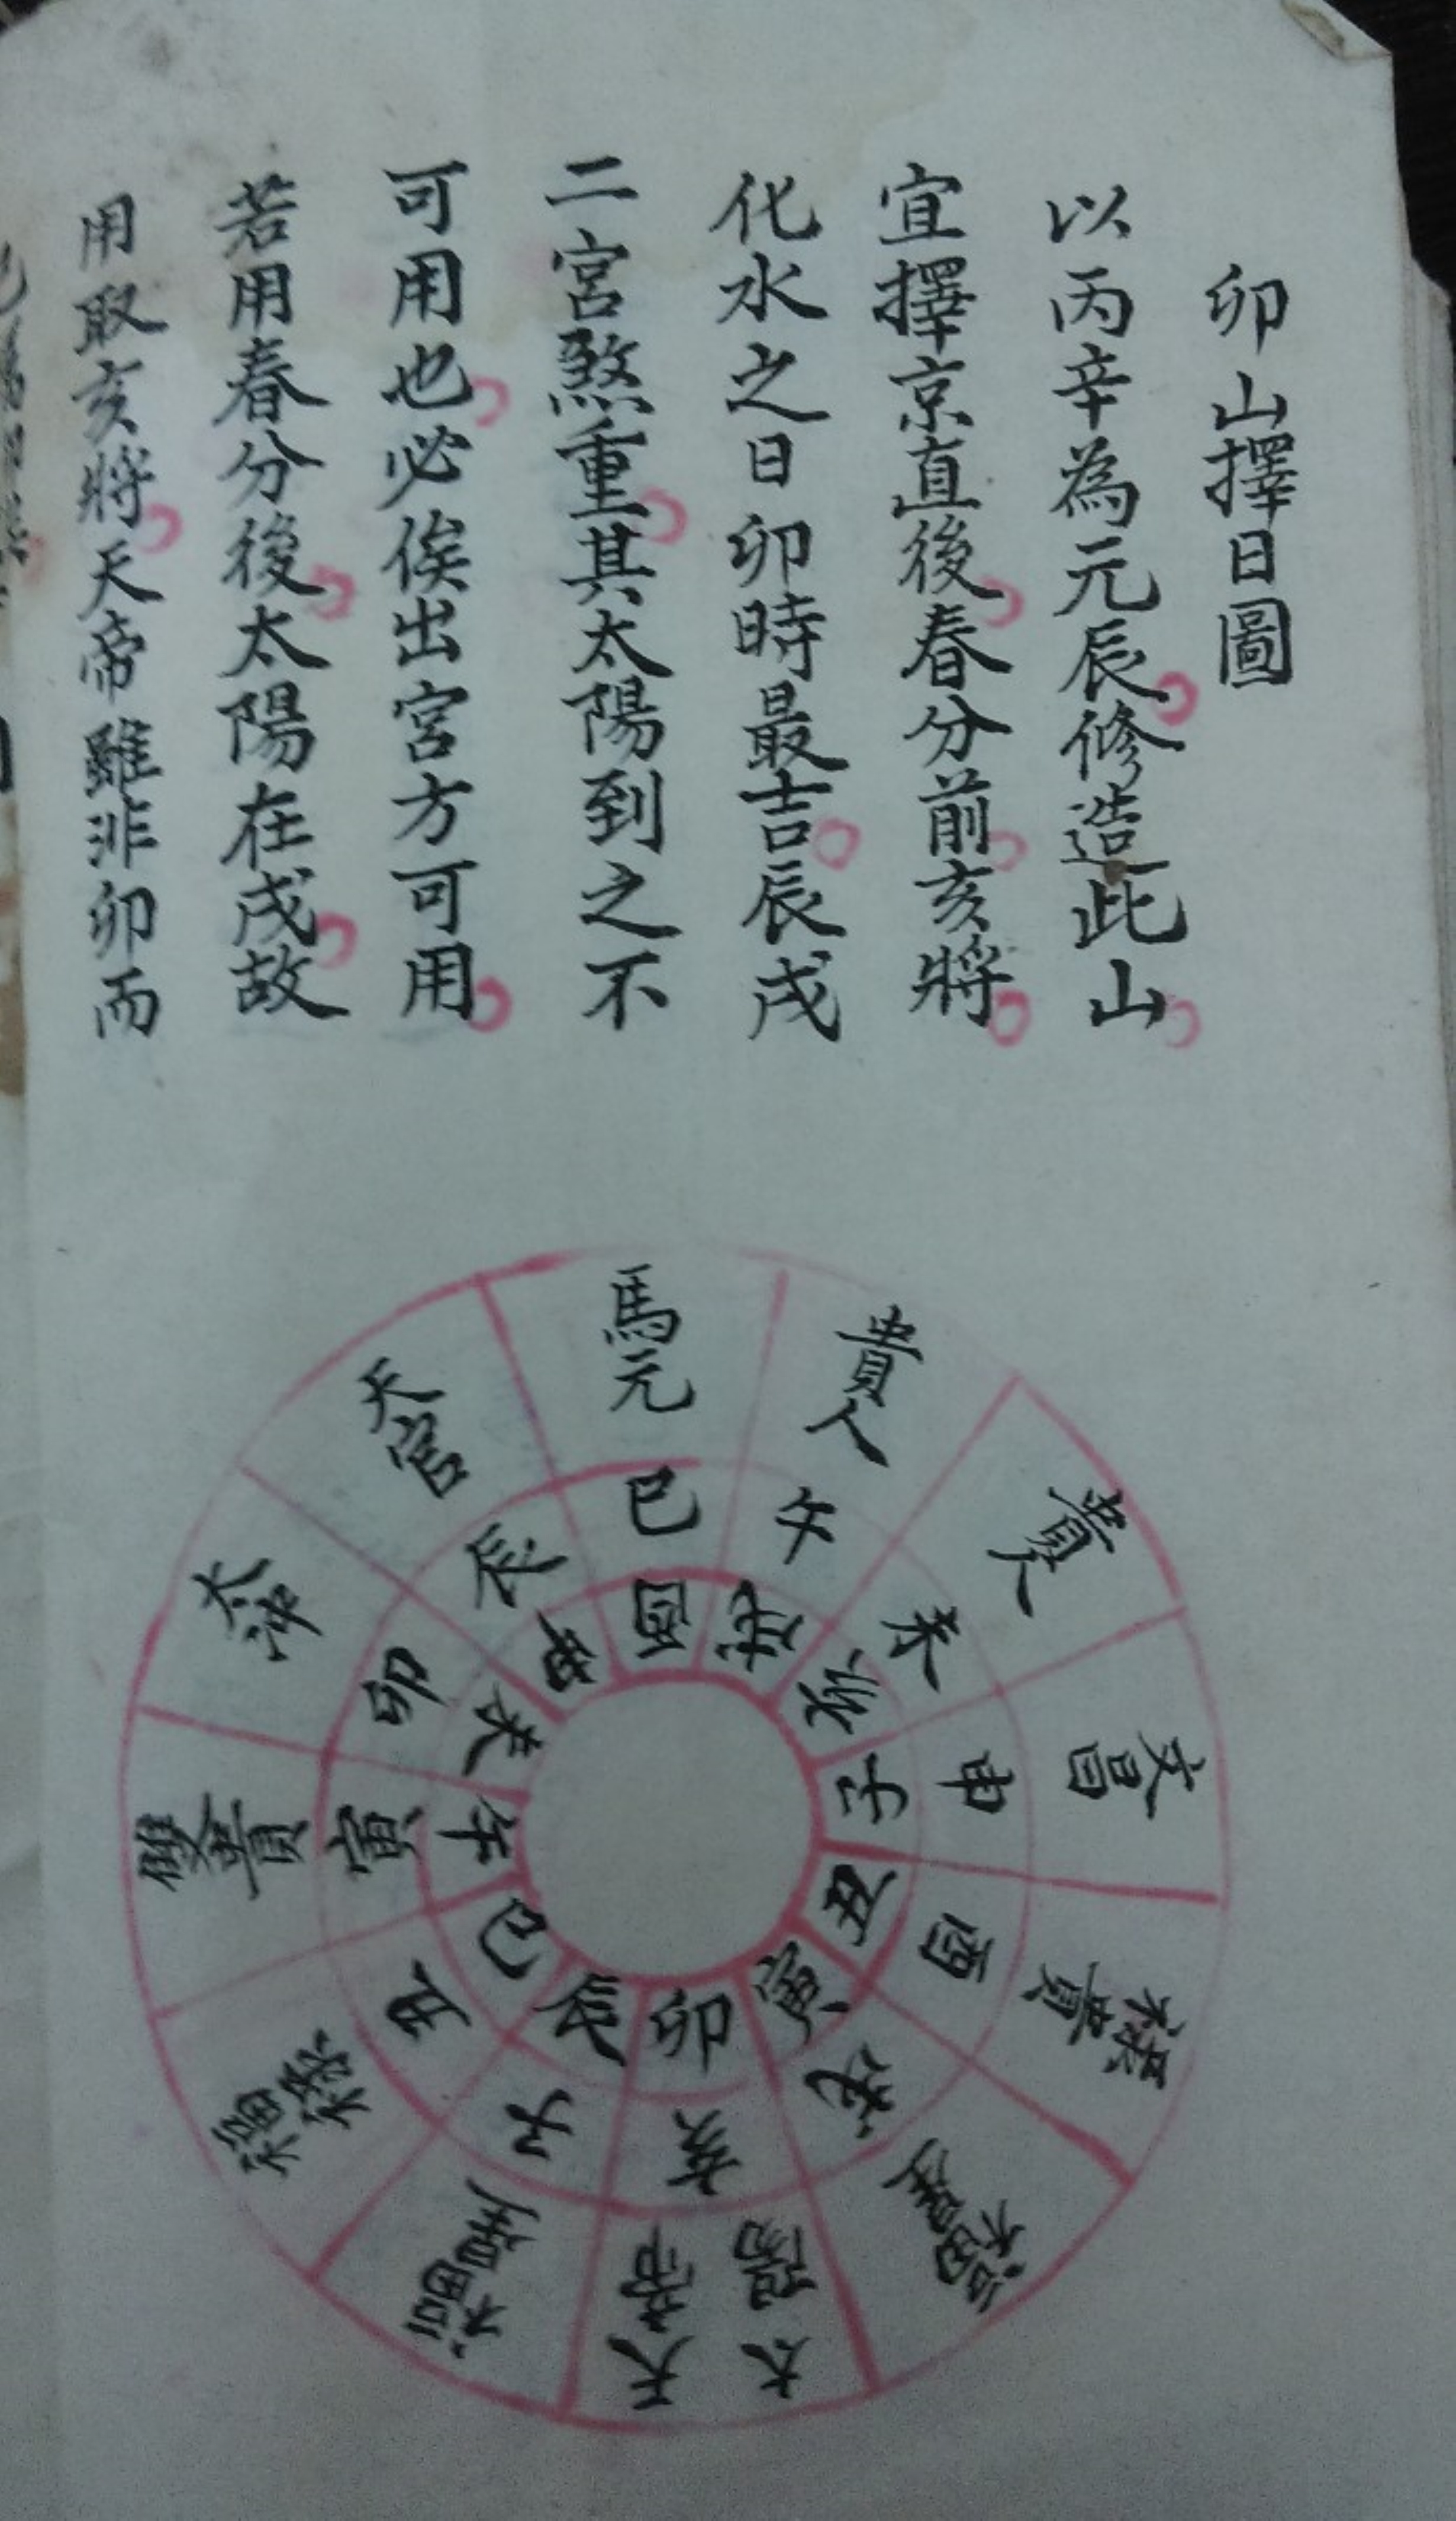 卯山擇日圖
以丙辛為元辰修造此山
宜擇京直後春分前亥將
化水之日卯時最吉辰戌
二宮煞重其太陽到之不
可用也必俟出宮方可用
若用春分後太陽在戌故
用取亥將天帝雖非卯而
馬元
貴人
貴人
文昌
祿貴
福星
太陽
天帝
福星
福祿
雙貴
天官
巳
午
未
申
酉
戌
亥
子
丑
寅
卯
辰
酉
戌
亥
子
丑
寅
卯
辰
巳
午
未
申